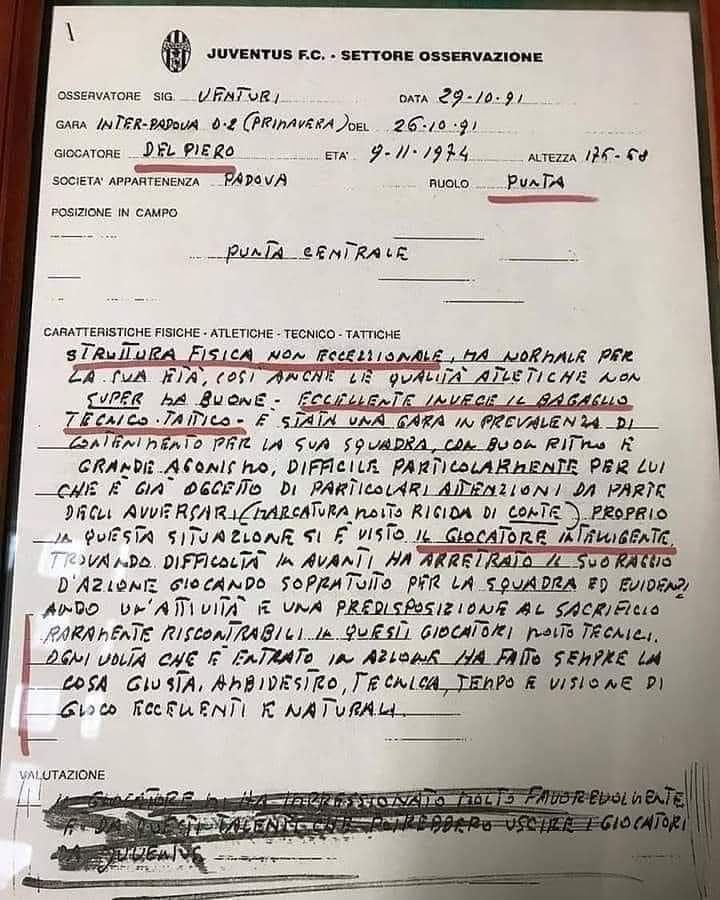 JUVENTUS F.C. - SETTORE OSSERVAZIONE
OSSERVATORE SIG. VENTURI DATA 29-10-91
GARA INTER-PADOVA 0-2 (PRIMAVERA) DEL 26-10-91
GIOCATORE DEL PIERO ETA' 9-11-1974 ALTEZZA 175-68
SOCIETA' APPARTENENZA PADOVA RUOLO PUNTA
POSIZIONE IN CAMPO
PUNTA CENTRALE
CARATTERISTICHE FISICHE - ATLETICHE - TECNICO - TATTICHE
STRUTTURA FISICA NON ECCEZIONALE, MA NORMALE PER
LA SUA ETÀ, COSÌ ANCHE LE QUALITÀ ATLETICHE NON
SUPER MA BUONE - ECCELLENTE INVECE IL BAGAGLIO
TECNICO-TATTICO - È STATA UNA GARA IN PREVALENZA DI
CONTENIMENTO PER LA SUA SQUADRA, CON BUON RITMO E
GRANDE AGONISMO, DIFFICILE PARTICOLARMENTE PER LUI
CHE È GIÀ OGGETTO DI PARTICOLARI ATTENZIONI DA PARTE
DEGLI AVVERSARI (MARCATURA MOLTO RIGIDA DI CONTE) PROPRIO
IN QUESTA SITUAZIONE SI È VISTO IL GIOCATORE INTELLIGENTE.
TROVANDO DIFFICOLTÀ IN AVANTI HA ARRETRATO IL SUO RAGGIO
D'AZIONE GIOCANDO SOPRATUTTO PER LA SQUADRA ED EVIDENZI
ANDO UN'ATTIVITÀ E UNA PREDISPOSIZIONE AL SACRIFICIO
RARAMENTE RISCONTRABILI IN QUESTI GIOCATORI MOLTO TECNICI.
OGNI VOLTA CHE È ENTRATO IN AZIONE HA FATTO SEMPRE LA
COSA GIUSTA. AMBIDESTRO, TECNICA, TEMPO E VISIONE DI
GIOCO ECCELLENTI E NATURALI.
VALUTAZIONE
IL GIOCATORE MI HA IMPRESSIONATO MOLTO FAVOREVOLMENTE
E DA QUESTI TALENTI CHE POTREBBERO USCIRE I GIOCATORI
DA JUVENTUS